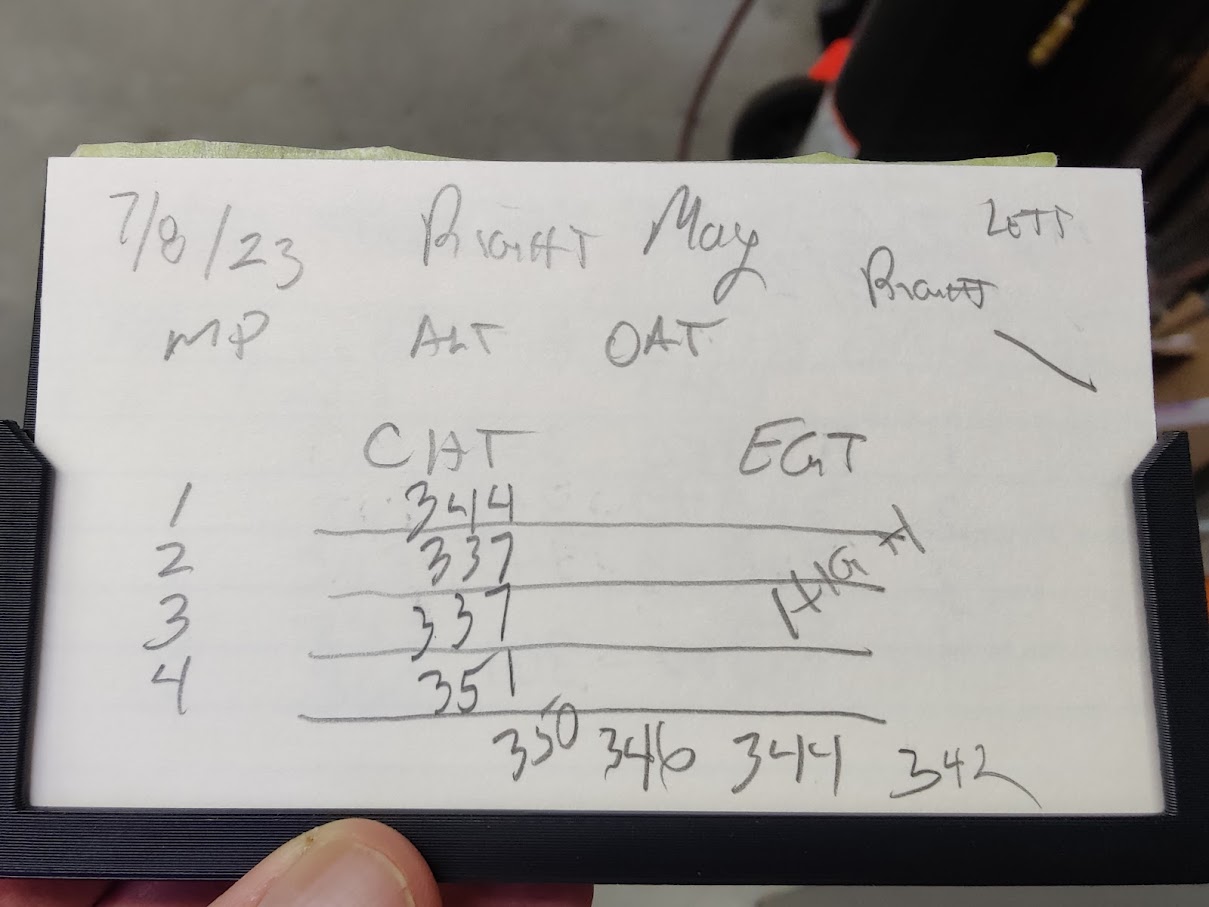 7/8/23 RIGHT Mag LEFT
RIGHT
MP ALT OAT
CHT EGT
1 344
2 337
3 337 HIGH
4 351
350 346 344 342